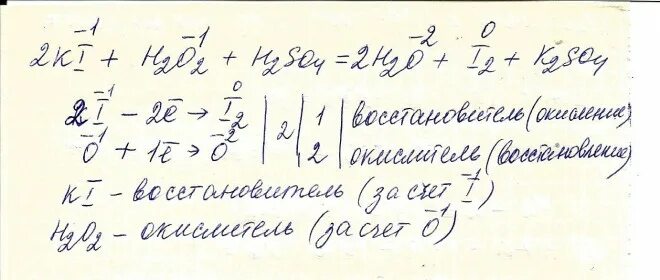 2KI⁻¹ + H₂O₂⁻¹ + H₂SO₄ = 2H₂O⁻² + I₂⁰ + K₂SO₄
2I⁻¹ - 2ē → I₂⁰ | 2 | 1 | восстановитель (окисление)
O⁻¹ + 1ē → O⁻² | | 2 | окислитель (восстановление)
KI - восстановитель (за счет I⁻¹)
H₂O₂ - окислитель (за счет O⁻¹)